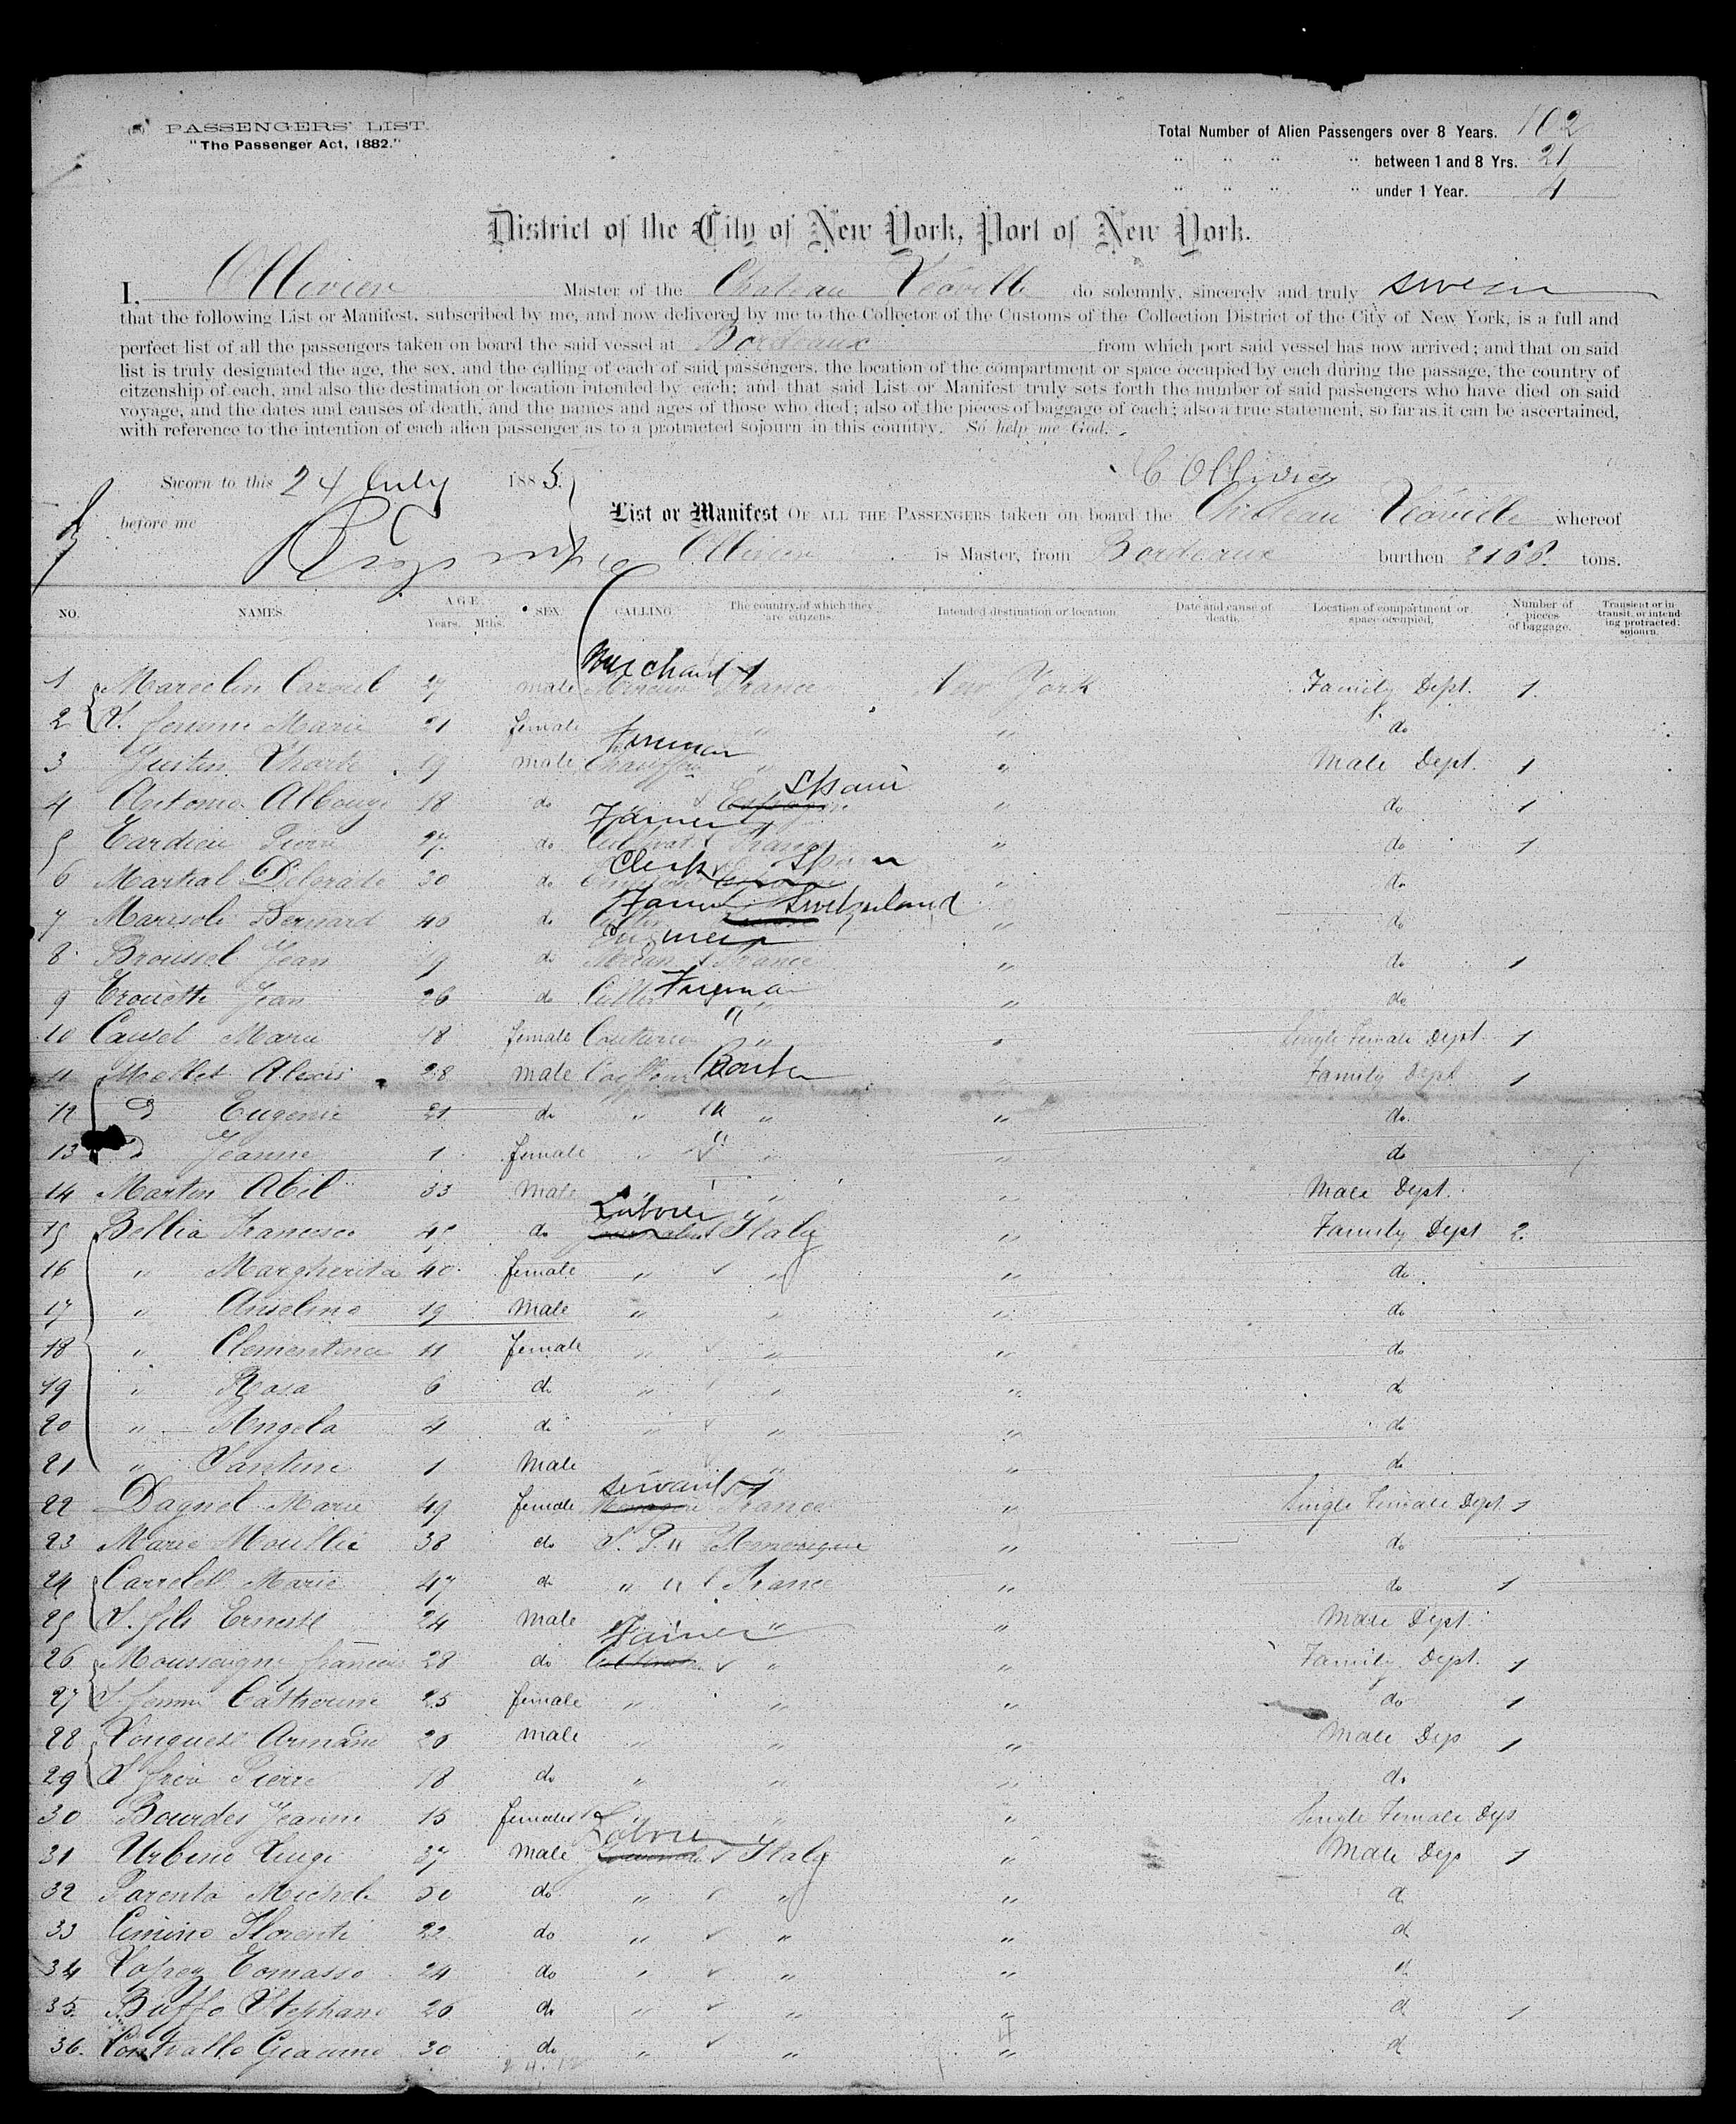 (8) PASSENGERS' LIST.
"The Passenger Act, 1882."
Total Number of Alien Passengers over 8 Years. 102
" " " " between 1 and 8 Yrs. 21
" " " " under 1 Year. 4
District of the City of New York, Port of New York.
I, Ollivier Master of the Chateau Léoville do solemnly, sincerely and truly swear
that the following List or Manifest, subscribed by me, and now delivered by me to the Collector of the Customs of the Collection District of the City of New York, is a full and
perfect list of all the passengers taken on board the said vessel at Bordeaux from which port said vessel has now arrived; and that on said
list is truly designated the age, the sex, and the calling of each of said passengers, the location of the compartment or space occupied by each during the passage, the country of
citzenship of each, and also the destination or location intended by each; and that said List or Manifest truly sets forth the number of said passengers who have died on said
voyage, and the dates and causes of death, and the names and ages of those who died; also of the pieces of baggage of each; also a true statement, so far as it can be ascertained,
with reference to the intention of each alien passenger as to a protracted sojourn in this country. So help me God.
C Ollivier
Sworn to this 24 July 1885.
before me
List or Manifest OF ALL THE PASSENGERS taken on board the Chateau Léoville whereof
Ollivier is Master, from Bordeaux burthen 2166. tons.
NO. NAMES. AGE. Years. Mths. SEX. CALLING. The country of which they are citizens. Intended destination or location. Date and cause of death. Location of compartment or space occupied. Number of pieces of baggage. Transient or in transit, or intending protracted sojourn.
Merchant
1 Marcelin 27 male France New York Family Dept. 1
2 S. femme Marie 21 female " " do
Fireman
3 Justin 19 male Chauffeur " " Male Dept. 1
Spain
4 Antonio 18 do Espagne " do 1
Farmer
5 Tardieu Pierre 27 do Cultivat France " do 1
Clerk Spain
6 Martial Delgrado 30 do " do
Farmer Switzerland
7 Bernard 40 do Cultiv " do
8 Broussel Jean 19 do France " do 1
9 Jean 26 do Cultiv " " do
10 Marie 18 female Couturière " " Single Female Dept 1
11 Mollet Alexis 28 male Coiffeur Barber " Family Dept 1
12 d Eugenie 21 do " " " do
13 d Jeanne 1 female " " " do
14 Martin Abel 33 Male " " " Male Dept.
Laborer
15 Bellia Francesco 45 do Journalier Italy " Family Dept 2.
16 " Margherita 40 female " " " do
17 " Anselmo 19 Male " " " do
18 " Clementina 11 female " " " do
19 " Rosa 6 do " " " do
20 " Angela 4 do " " " do
21 " Santina 1 Male " " do
servant
22 Dagnel Marie 49 female France " Single Female Dept. 1
23 Marie Moullie 38 do S. P. " Amerique " do
24 Carrelet Marie 47 do " " France " do 1
25 S. fils Ernest 24 male " " Male Dept.
Farmer
26 Moussaigne francois 28 do " " Family Dept. 1
27 S. femme Catherine 25 female " " " do 1
28 Armand 20 male " " " Male Dep 1
29 S frère Pierre 18 do " " " do
30 Bourdes Jeanne 15 female " " " Single Female Dep
Laborer
31 Urbino Luigi 37 male Journalier Italy " Male Dep 1
32 Parenta Michele 50 do " " " d
33 Cimino Florenti 22 do " " " d
34 Lopez Tomasso 24 do " " " "
35. Buffo Stephano 26 do " " " d 1
36. Giacomo 30 do " " " d